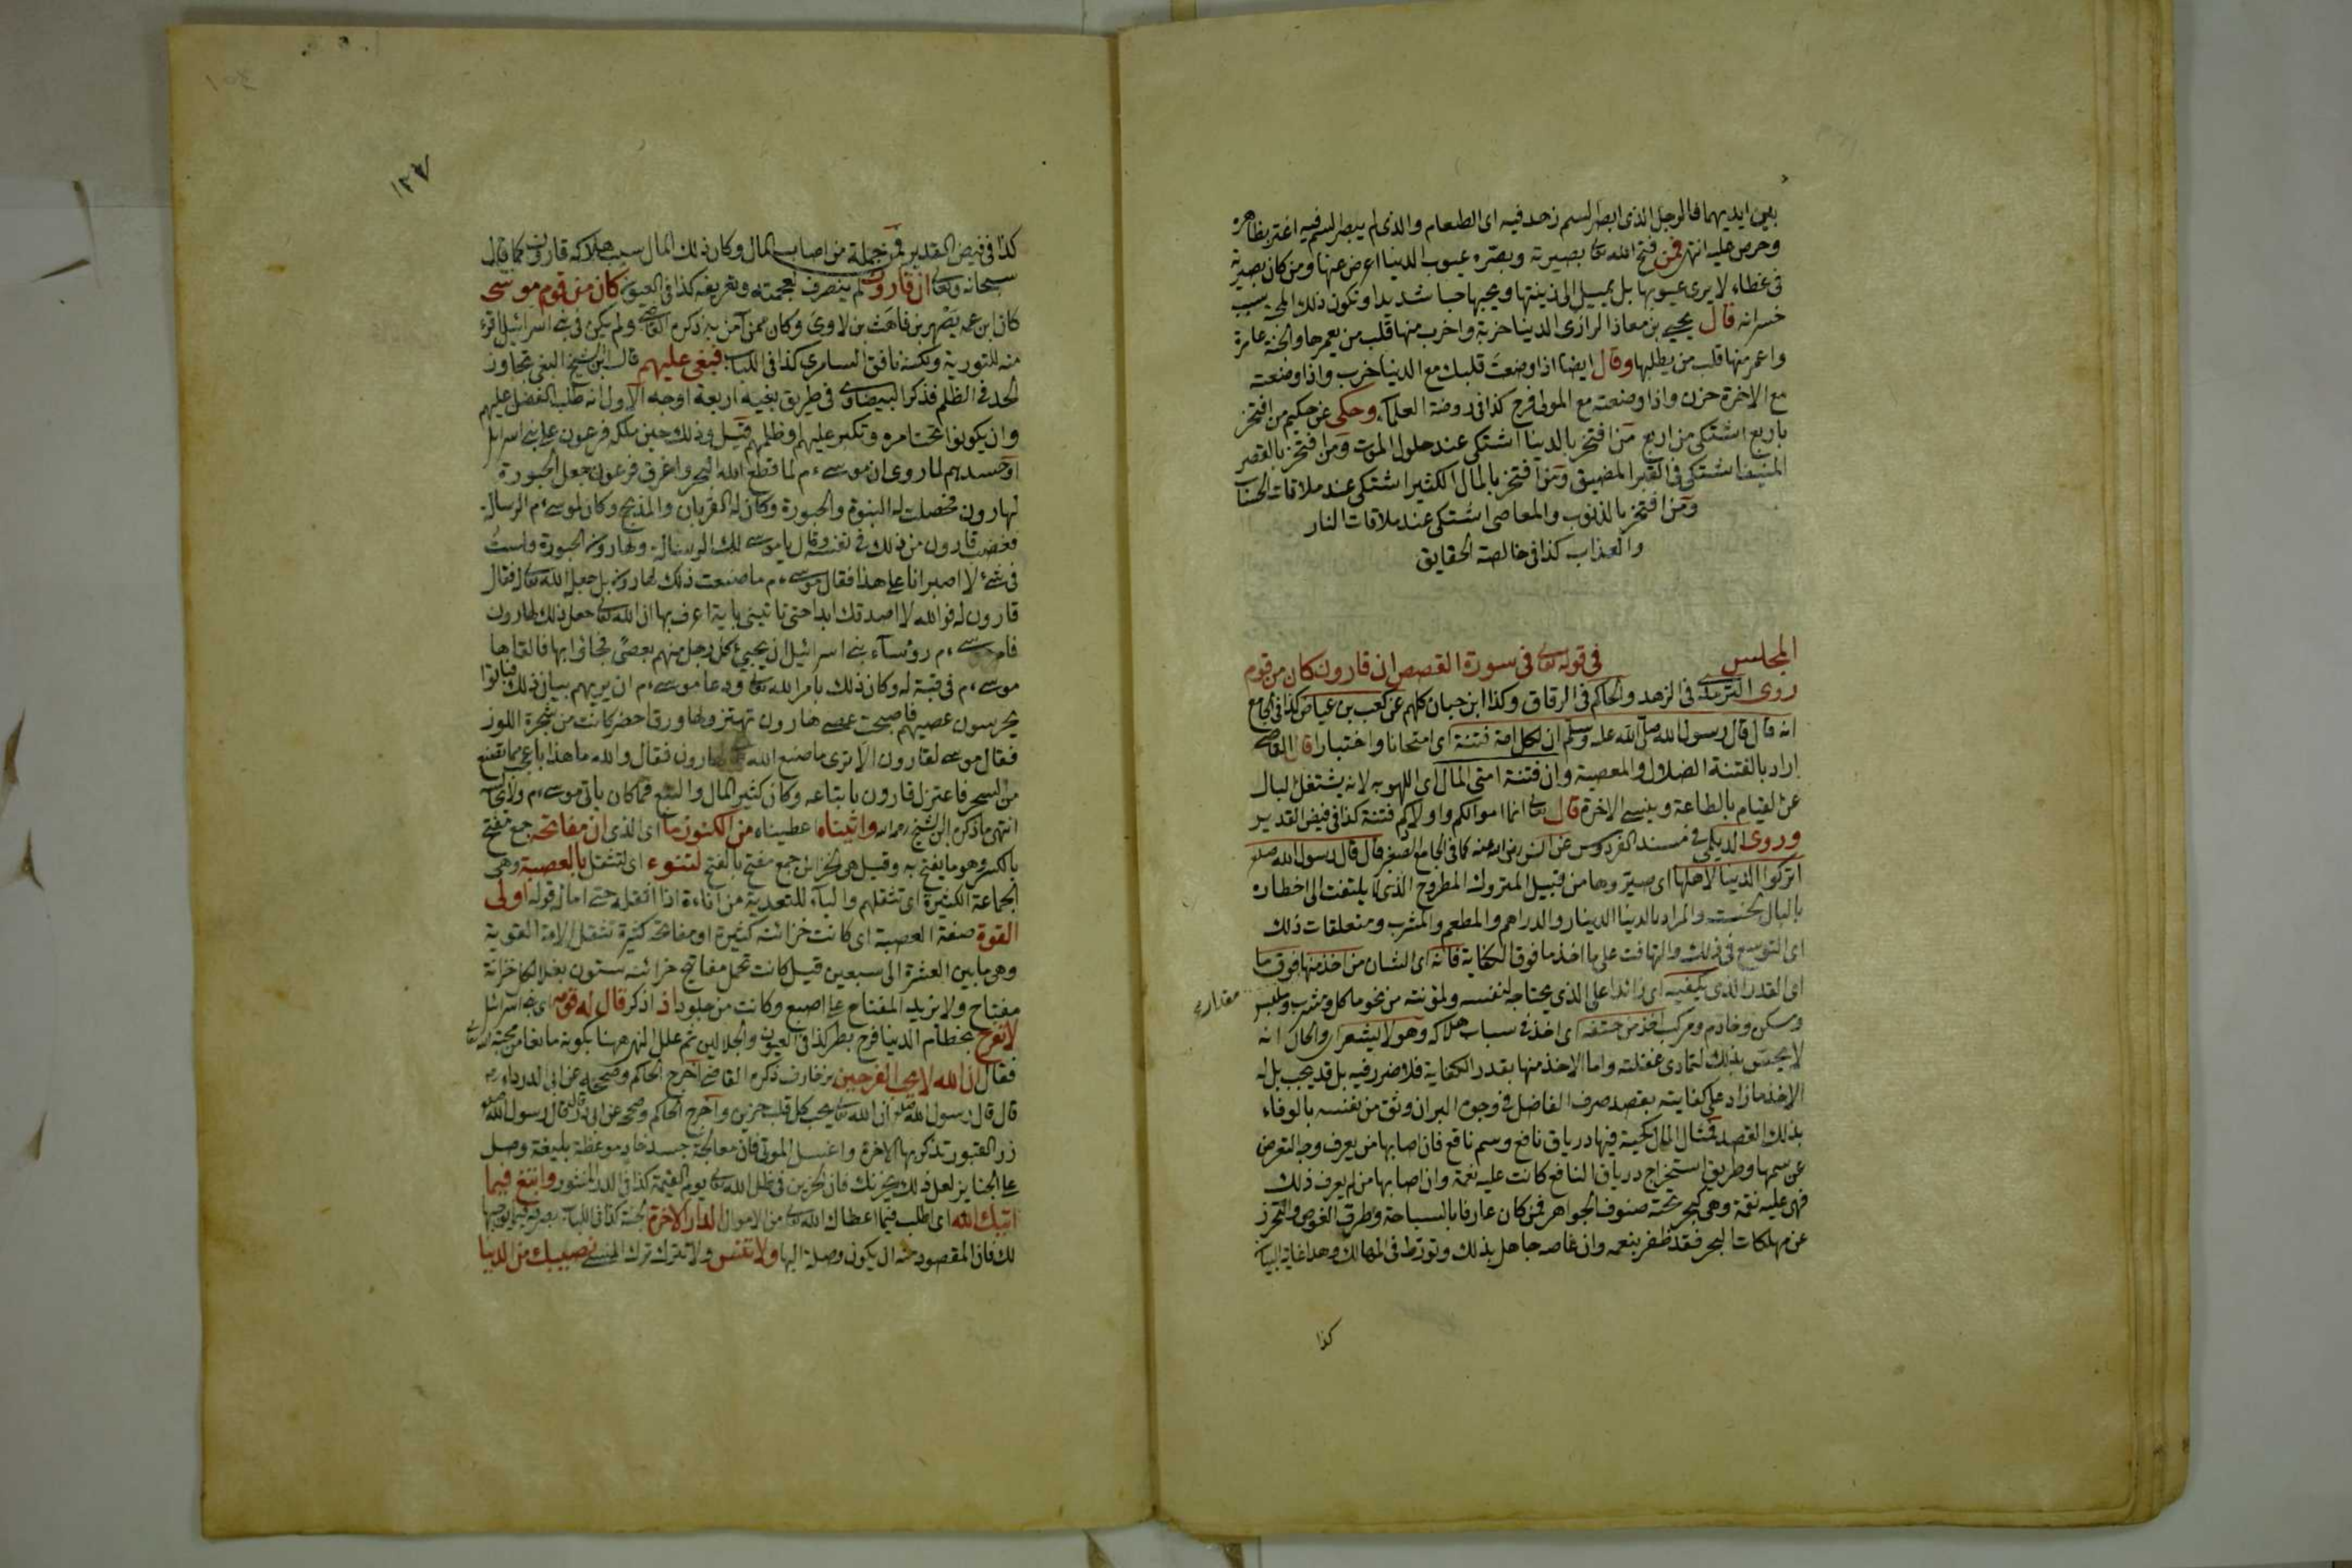 بين ايديهما فالرجل الذى ابصر السم زهد فيه اى الطعام والذى لم يبصر السم فيه اغتر بظاهره
وحرص عليه انتهى فمن فتح الله تعالى بصيرته وبصره عيوب الدنيا اعرض عنها ومن كان بصيرته
فى غطاء لا يرى عيوبها بل يميل الى زينتها ويحبها حبا شديدا وتكون ذلك المحبة سبب
خسرانه قال يحيى بن معاذ الرازى الدنيا خربة واخرب منها قلب من يعمرها والجنة عامرة
واعمر منها قلب من يطلبها وقال ايضا اذا وضعت قلبك مع الدنيا خرب واذا وضعته
مع الاخرة حزن واذا وضعته مع المولى فرح كذا فى روضة العلماء وحكى عن حكيم من افتخر
باربع اشتكى من اربع من افتخر بالدنيا اشتكى عند حلول الموت ومن افتخر بالقصر
المنيف اشتكى فى القبر المضيق ومن افتخر بالمال الكثير اشتكى عند ملاقات الحساب
ومن افتخر بالذنوب والمعاصى اشتكى عند ملاقات النار
والعذاب كذا فى خالصة الحقايق
المجلس فى قوله تعالى فى سورة القصص ان قارون كان من قوم
روى الترمذى فى الزهد والحاكم فى الرقاق وكذا ابن حبان كلهم عن كعب بن عياض كذا فى الجامع
انه قال قال رسول الله صلى الله عليه وسلم ان لكل امة فتنة اى امتحانا واختبارا قال القاضى
اراد بالفتنة الضلال والمعصية وان فتنة امتى المال اى اللهو به لانه يشتغل البال
عن القيام بالطاعة وينسى الاخرة قال تعالى انما اموالكم واولادكم فتنة كذا فى فيض القدير
وروى الديلمى فى مسند الفردوس عن انس رضى الله عنه كما فى الجامع الصغير قال قال رسول الله صلعم
اتركوا الدنيا لاهلها اى صيروها من قبيل المتروك المطروح الذى لا يلتفت الى اخطاره
بالبال لخسته والمراد بالدنيا الدينار والدراهم والمطعم والمشرب ومتعلقات ذلك
اى التوسع فى ذلك والتهافت على ما اخذ ما فوق الكفاية فانه اى الشان من اخذ منها فوق ما
اى القدر الذى يكفيه اى زائدا على الذى يحتاجه لنفسه ولمؤنته من نحو ماكل ومشرب وملبس
مقداره
ومسكن وخادم ومركب اخذ من حتفه اى اخذ فى سباب هلاكه وهو لا يشعر اى والحال انه
لا يحس بذلك لتمادى غفلته واما الاخذ منها بقدر الكفاية فلا ضرر فيه بل قد يجب بل له
الاخذ ما زاد على كفايته بقصد صرف الفاضل فى وجوه البر ان وثق من نفسه بالوفاء
بذلك القصد فمثال المال كحية فيها درياق نافع وسم ناقع فان اصابها من يعرف وجه التعرض
عن سمها وطريق استخراج درياق النافع كانت عليه نعمة وان اصابها من لم يعرف ذلك
فهى عليه نقمة وهى كبحر تحته صنوف الجواهر فمن كان عارفا بالسباحة وطرق الغوص والتحرز
عن مهلكات البحر فقد ظفر بنعمه وان غاصه جاهل بذلك وتورط فى المهالك وهذا غاية البيان
كذا
١٢٧
كذا فى فيض القدير فمن جملة من اصاب المال وكان ذلك المال سبب هلاكه قارون كما قال
سبحانه وتعالى ان قارون لم ينصرف لعجمته وتعريفه كذا فى العيون كان من قوم موسى
كان ابن عمه يصهر بن قاهث بن لاوى وكان ممن آمن به ذكره القاضى ولم يكن فى بنى اسرائيل اقرء
منه للتورية ولكنه نافق السامرى كذا فى اللباب فبغى عليهم قال ابن الشيخ البغى تجاوز
الحد فى الظلم فذكر البيضاوى فى طريق بغيه اربعة اوجه الاول انه طلب الفضل عليهم
وان يكونوا تحت امره وتكبر عليهم او ظلمهم قيل وذلك حين ملكه فرعون على بنى اسرائيل
او حسدهم لما روى ان موسى ءم لما قطع الله البحر واغرق فرعون جعل الحبورة
لهارون فحصلت له النبوة والحبورة وكان له القربان والمذبح وكان لموسى ءم الرسالة
فغضب قارون من ذلك فى نفسه وقال يا موسى لك الرسالة ولهارون الحبورة ولست
فى شئ لا اصبر انا على هذا فقال موسى ءم ما صنعت ذلك لهارون بل جعل الله تعالى له فقال
قارون له فوالله لا اصدقك ابدا حتى تاتينى باية اعرف بها ان الله تعالى جعل ذلك لهارون
فامر موسى ءم رؤساء بنى اسرائيل ان يجيئ كل رجل منهم بعصى فجاؤا بها فالقاها
موسى ءم فى قبة له وكان ذلك بامر الله تعالى ودعا موسى ءم ان يريهم بيان ذلك فباتوا
يحرسون عصيهم فاصبحت عصى هارون تهتز ولها ورق اخضر كانت من شجرة اللوز
فقال موسى لقارون الا ترى ما صنع الله لهارون فقال والله ما هذا باعجب مما تصنع
من السحر فاعتزل قارون باتباعه وكان كثير المال والتبع فما كان ياتى موسى ءم ولا يجالسه
انتهى ما ذكره ابن الشيخ رحمه الله واتيناه اعطيناه من الكنوز ما اى الذى ان مفاتحه جمع مفتح
بالكسر وهو ما يفتح به وقيل هى الخزائن جمع مفتح بالفتح لتنوء اى لتثقل بالعصبة وهى
الجماعة الكثيرة اى تثقلهم والباء للتعدية من اناءه اذا اثقله حتى اماله قوله اولى
القوة صفة العصبة اى كانت خزائنه كثيرة او مفاتحه كثيرة تثقل الامة القوية
وهى ما بين العشرة الى سبعين قيل كانت تحمل مفاتيح خزائنه ستون بغلا لكل خزانة
مفتاح ولا يزيد المفتاح على اصبع وكانت من جلود اذ اذكر قال له قومه اى بنى اسرائيل
لا تفرح بحطام الدنيا فرح بطر كذا فى العيون والجلالين ثم علل النهى ههنا بكونه مانعا من محبة الله تعالى
فقال ان الله لا يحب الفرحين بزخارف ذكره القاضى اخرج الحاكم وصححه عن ابى الدرداء رض
قال قال رسول الله صلعم ان الله تعالى يحب كل قلب حزين واخرج الحاكم وصححه عن ابى ذر قال قال رسول الله صلعم
زر القبور تذكر بها الاخرة واغسل الموتى فان معالجة جسد خاو موعظة بليغة وصل
على الجنايز لعل ذلك يحزنك فان الحزين فى ظل الله تعالى يوم القيمة كذا فى الدر المنثور وابتغ فيما
اتيك الله اى اطلب فيما اعطاك الله تعالى من الاموال الدار الاخرة الجنة كذا فى اللباب بصرفه فيما يوجبها
لك فان المقصود منه ان يكون وصلة اليها ولا تنس ولا تترك ترك المنسى نصيبك من الدنيا